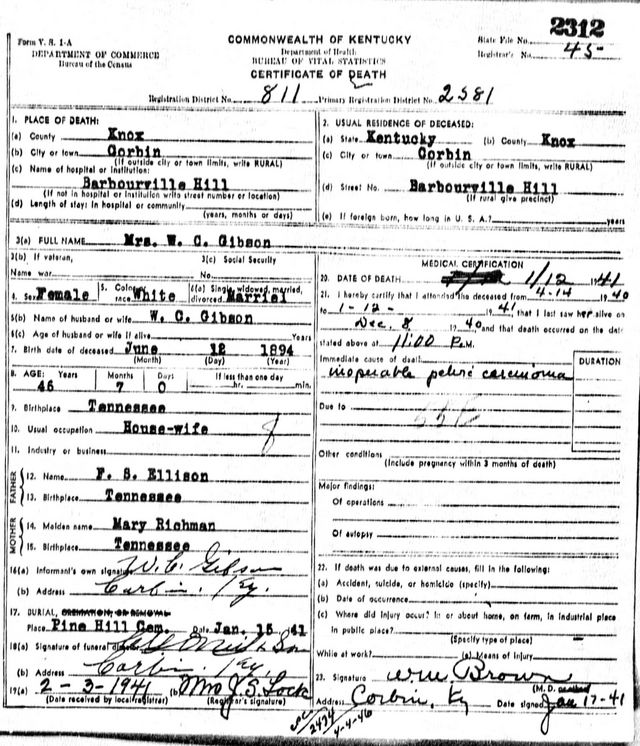 2312
Form V. S. 1-A
DEPARTMENT OF COMMERCE
Bureau of the Census
COMMONWEALTH OF KENTUCKY
Department of Health
BUREAU OF VITAL STATISTICS
CERTIFICATE OF DEATH
State File No.
Registrar's No. 45-
Registration District No. 811 Primary Registration District No. 2381
1. PLACE OF DEATH:
(a) County Knox
(b) City or town Corbin
(If outside city or town limits, write RURAL)
(c) Name of hospital or institution:
Barbourville Hill
(If not in hospital or institution write street number or location)
(d) Length of stay: in hospital or community
(years, months or days)
2. USUAL RESIDENCE OF DECEASED:
(a) State Kentucky (b) County Knox
(c) City or town Corbin
(If outside city or town limits, write RURAL)
(d) Street No. Barbourville Hill
(If rural give precinct)
(e) If foreign born, how long in U. S. A.? years
3(a) FULL NAME Mrs. W. C. Gibson
3(b) If veteran, 3(c) Social Security
Name war No.
4. Sex Female 5. Color or race White 6(a) Single, widowed, married, divorced Marriel
6(b) Name of husband or wife W. C. Gibson
6(c) Age of husband or wife if alive Years
7. Birth date of deceased June 12 1894
(Month) (Day) (Year)
8. AGE: Years Months Days If less than one day
46 7 0 hr. min.
9. Birthplace Tennessee
10. Usual occupation House-wife
11. Industry or business
FATHER
12. Name F. S. Ellison
13. Birthplace Tennessee
MOTHER
14. Maiden name Mary Richman
15. Birthplace Tennessee
16(a) Informant's own signature W. C. Gibson
(b) Address Corbin, Ky.
17. BURIAL, CREMATION, OR REMOVAL
Place Pine Hill Cem. Date Jan. 15 41
18(a) Signature of funeral director & Son
(b) Address Corbin, Ky.
19(a) 2-3-1941 (b) Mrs J. S. Lock
(Date received by local registrar) (Registrar's signature)
MEDICAL CERTIFICATION
20. DATE OF DEATH 1/12 1941
21. I hereby certify that I attended the deceased from 4-14 1940
to 1-12- 1941 that I last saw her alive on
Dec. 8 1940 and that death occurred on the date
stated above at 11:00 P.M.
Immediate cause of death DURATION
inoperable pelvic carcinoma
Due to
Other conditions
(Include pregnancy within 3 months of death)
Major findings:
Of operations
Of autopsy
22. If death was due to external causes, fill in the following:
(a) Accident, suicide, or homicide (specify)
(b) Date of occurrence
(c) Where did injury occur? In or about home, on farm, in industrial place
in public place?
(Specify type of place)
While at work? (e) Means of injury
23. Signature Wm Brown
(M. D.
Address Corbin, Ky Date signed Jan 17-41
2474
4-4-46